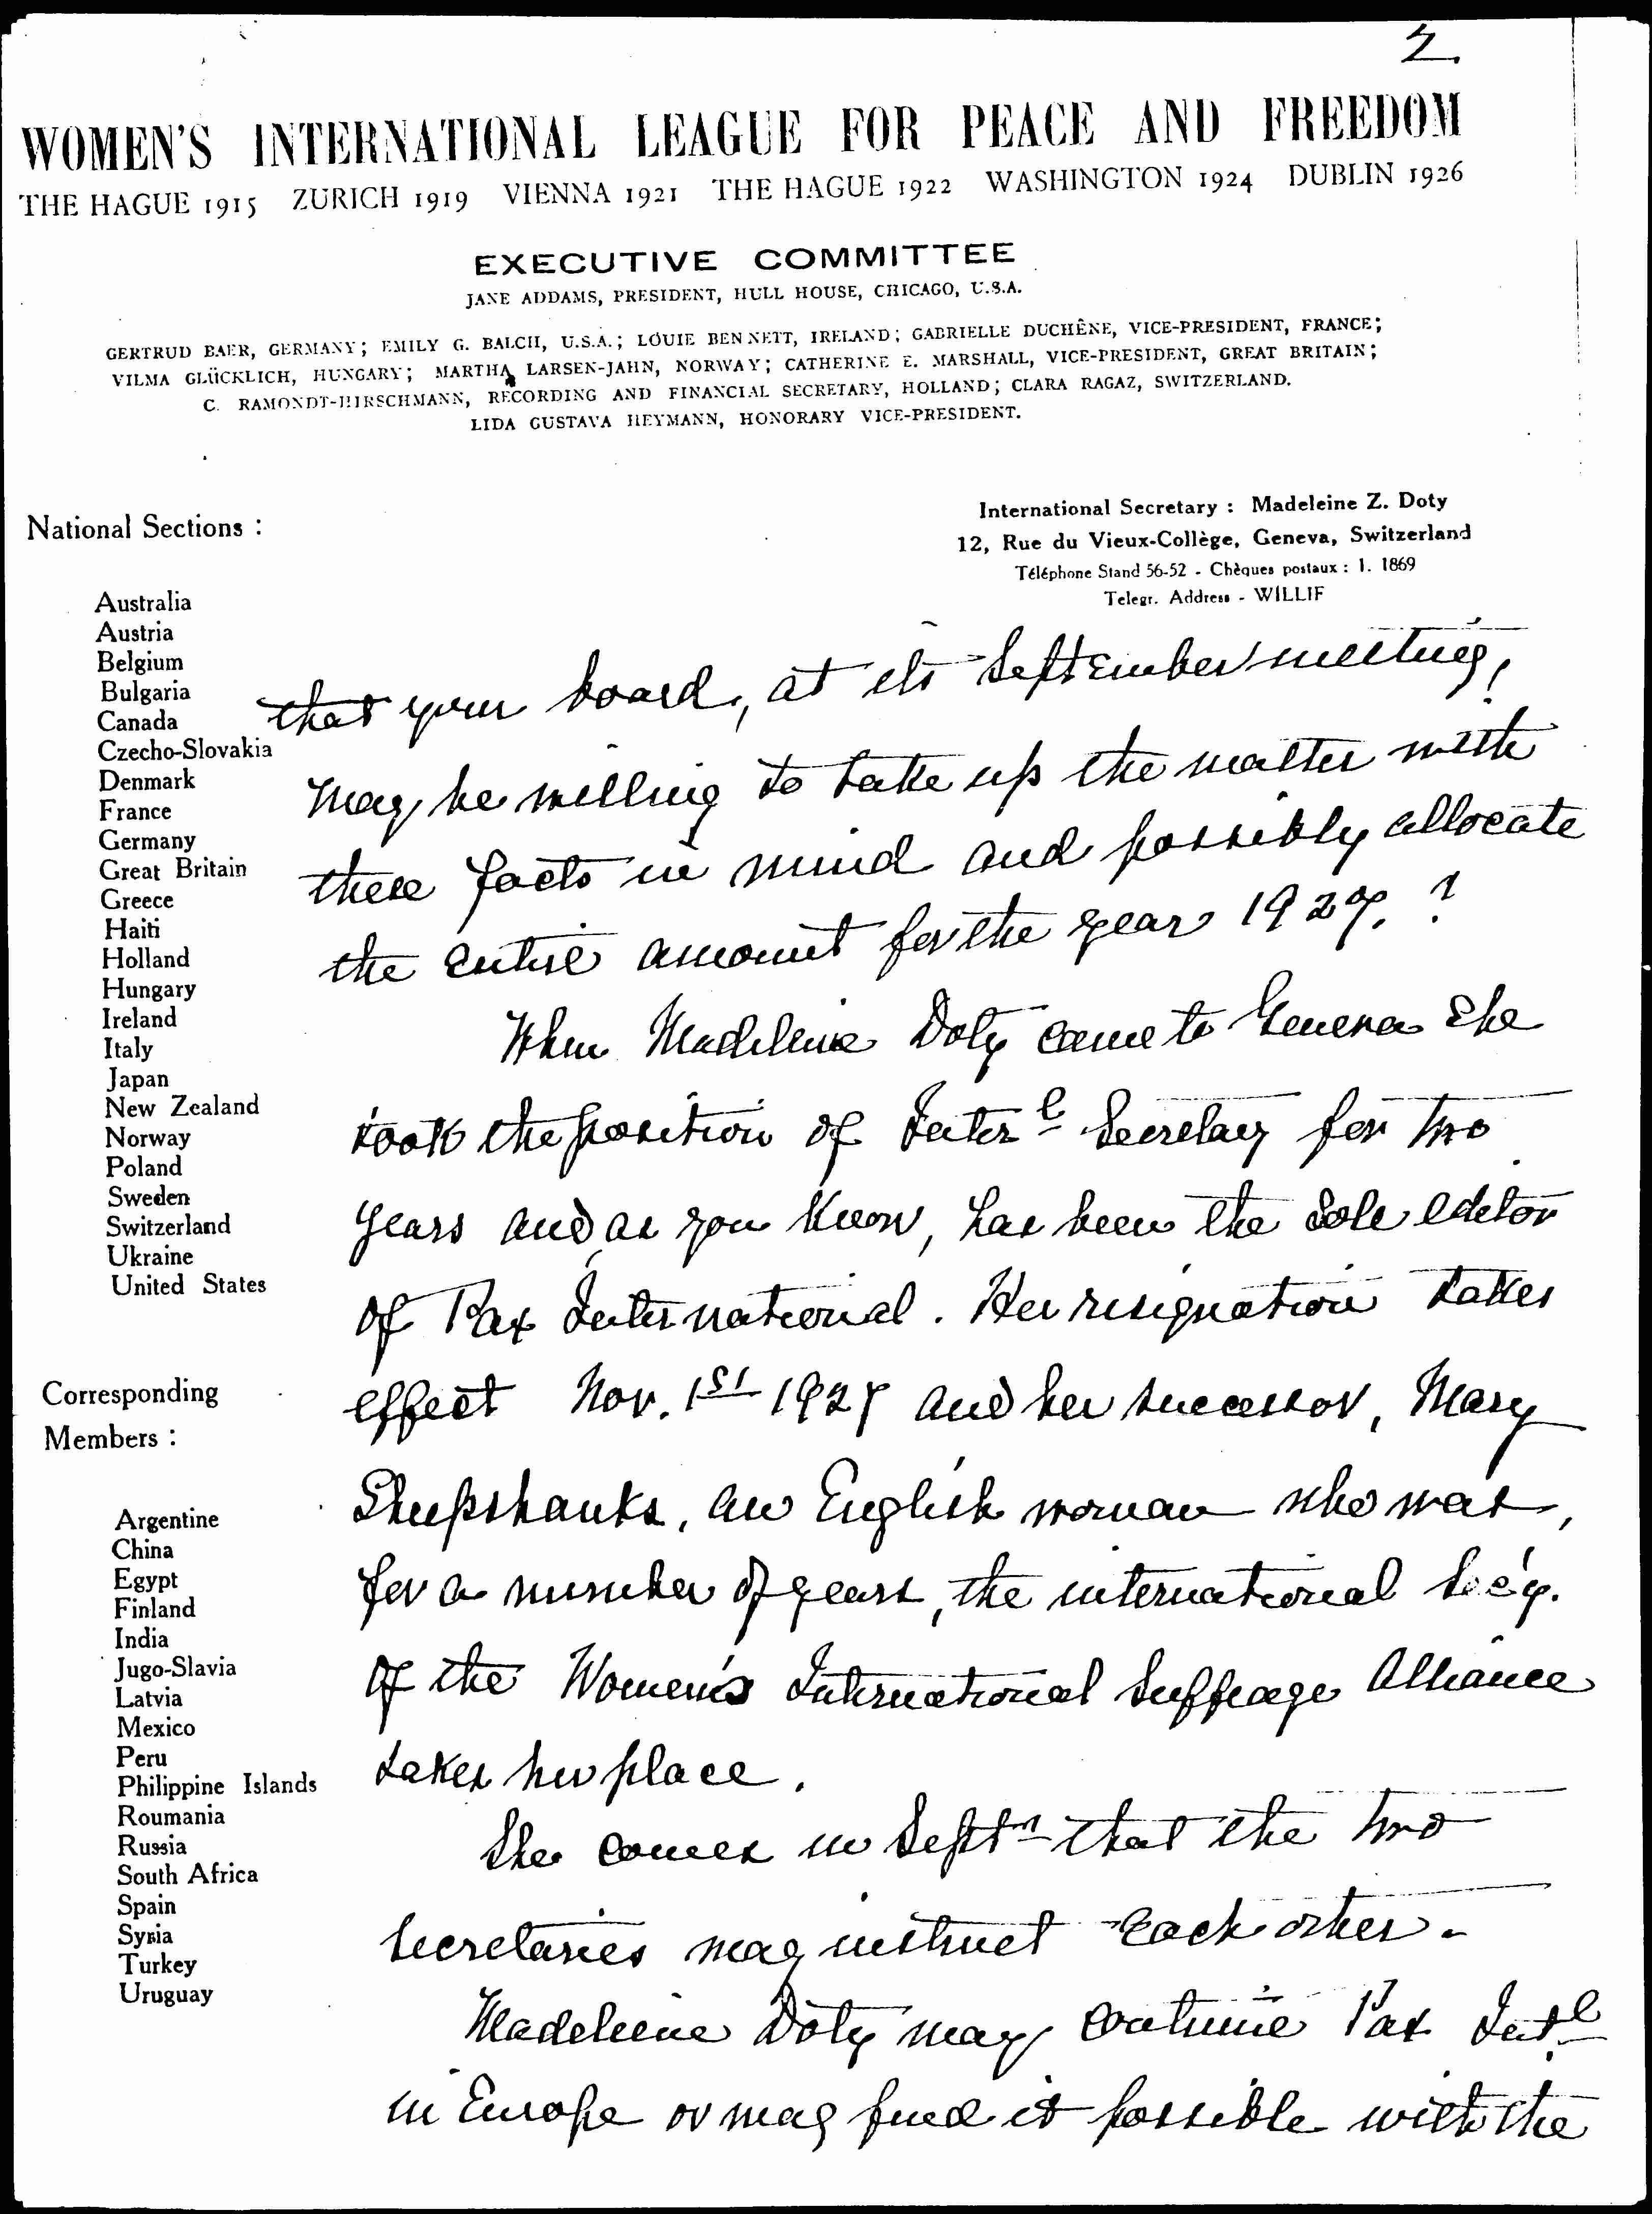 2.
WOMEN'S INTERNATIONAL LEAGUE FOR PEACE AND FREEDOM
THE HAGUE 1915 ZURICH 1919 VIENNA 1921 THE HAGUE 1922 WASHINGTON 1924 DUBLIN 1926
EXECUTIVE COMMITTEE
JANE ADDAMS, PRESIDENT, HULL HOUSE, CHICAGO, U.S.A.
GERTRUD BAER, GERMANY; EMILY G. BALCH, U.S.A.; LOUIE BENNETT, IRELAND; GABRIELLE DUCHÊNE, VICE-PRESIDENT, FRANCE;
VILMA GLÜCKLICH, HUNGARY; MARTHA LARSEN-JAHN, NORWAY; CATHERINE E. MARSHALL, VICE-PRESIDENT, GREAT BRITAIN;
C. RAMONDT-HIRSCHMANN, RECORDING AND FINANCIAL SECRETARY, HOLLAND; CLARA RAGAZ, SWITZERLAND.
LIDA GUSTAVA HEYMANN, HONORARY VICE-PRESIDENT.
International Secretary : Madeleine Z. Doty
12, Rue du Vieux-Collège, Geneva, Switzerland
Téléphone Stand 56-52 - Chèques postaux : I. 1869
Telegr. Address - WILLIF
National Sections :
Australia
Austria
Belgium
Bulgaria
Canada
Czecho-Slovakia
Denmark
France
Germany
Great Britain
Greece
Haiti
Holland
Hungary
Ireland
Italy
Japan
New Zealand
Norway
Poland
Sweden
Switzerland
Ukraine
United States
Corresponding
Members :
Argentine
China
Egypt
Finland
India
Jugo-Slavia
Latvia
Mexico
Peru
Philippine Islands
Roumania
Russia
South Africa
Spain
Syria
Turkey
Uruguay
that your board, at its September meeting,
may be willing to take up the matter with
these facts in mind and possibly allocate
the entire amount for the year 1927. ?
When Madeleine Doty came to Geneva she
took the position of Inter l Secretary for two
years and, as you know, has been the sole editor
of Pax International. Her resignation takes
effect Nov. 1st 1927 and her successor, Mary
Sheepshanks, an English woman who was,
for a number of years, the international Sec'y.
of the Women's International Suffrage Alliance
takes her place.
She comes in Sept that the two
secretaries may instruct each other.
Madeleine Doty may continue Pax Intl
in Europe or may find it possible with the